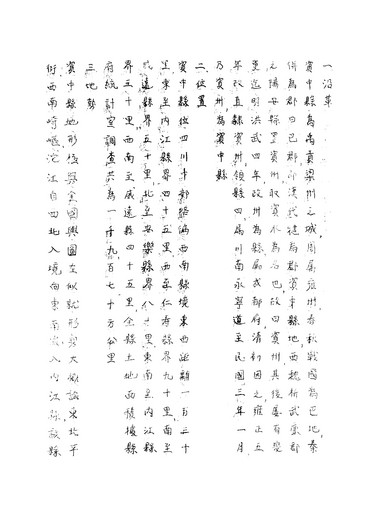 一沿革
資中縣為禹貢梁州之域周屬雍州春秋戰國為巴地秦
併為郡曰巴郡即漢武建為郡資中縣地西魏析武康郡
之陽安縣置資州取資水為名也故曰資州其後屢有變
更迄明洪武四年改州為縣屬成都府清初因之雍正五
年秋直隸資州領縣四屬川南永寧道至民國三年一月
乃資州為資中縣
二位置
資中縣位四川中部偏西南縣境東西距離一百三十
里東至內江縣界四十五里西至仁壽縣界九十里南至
威遠縣界五十里北至安樂縣界八十里東南至內江縣
界三十里西南至威遠縣四十五里全縣土地面積據縣
府統計室調查共為一千九百七十方公里
三地勢
資中縣地形極與全國輿圖左似就形勢大概論東北平
衍西南崎嶇沱江自西北入境向東南流入內江縣該縣